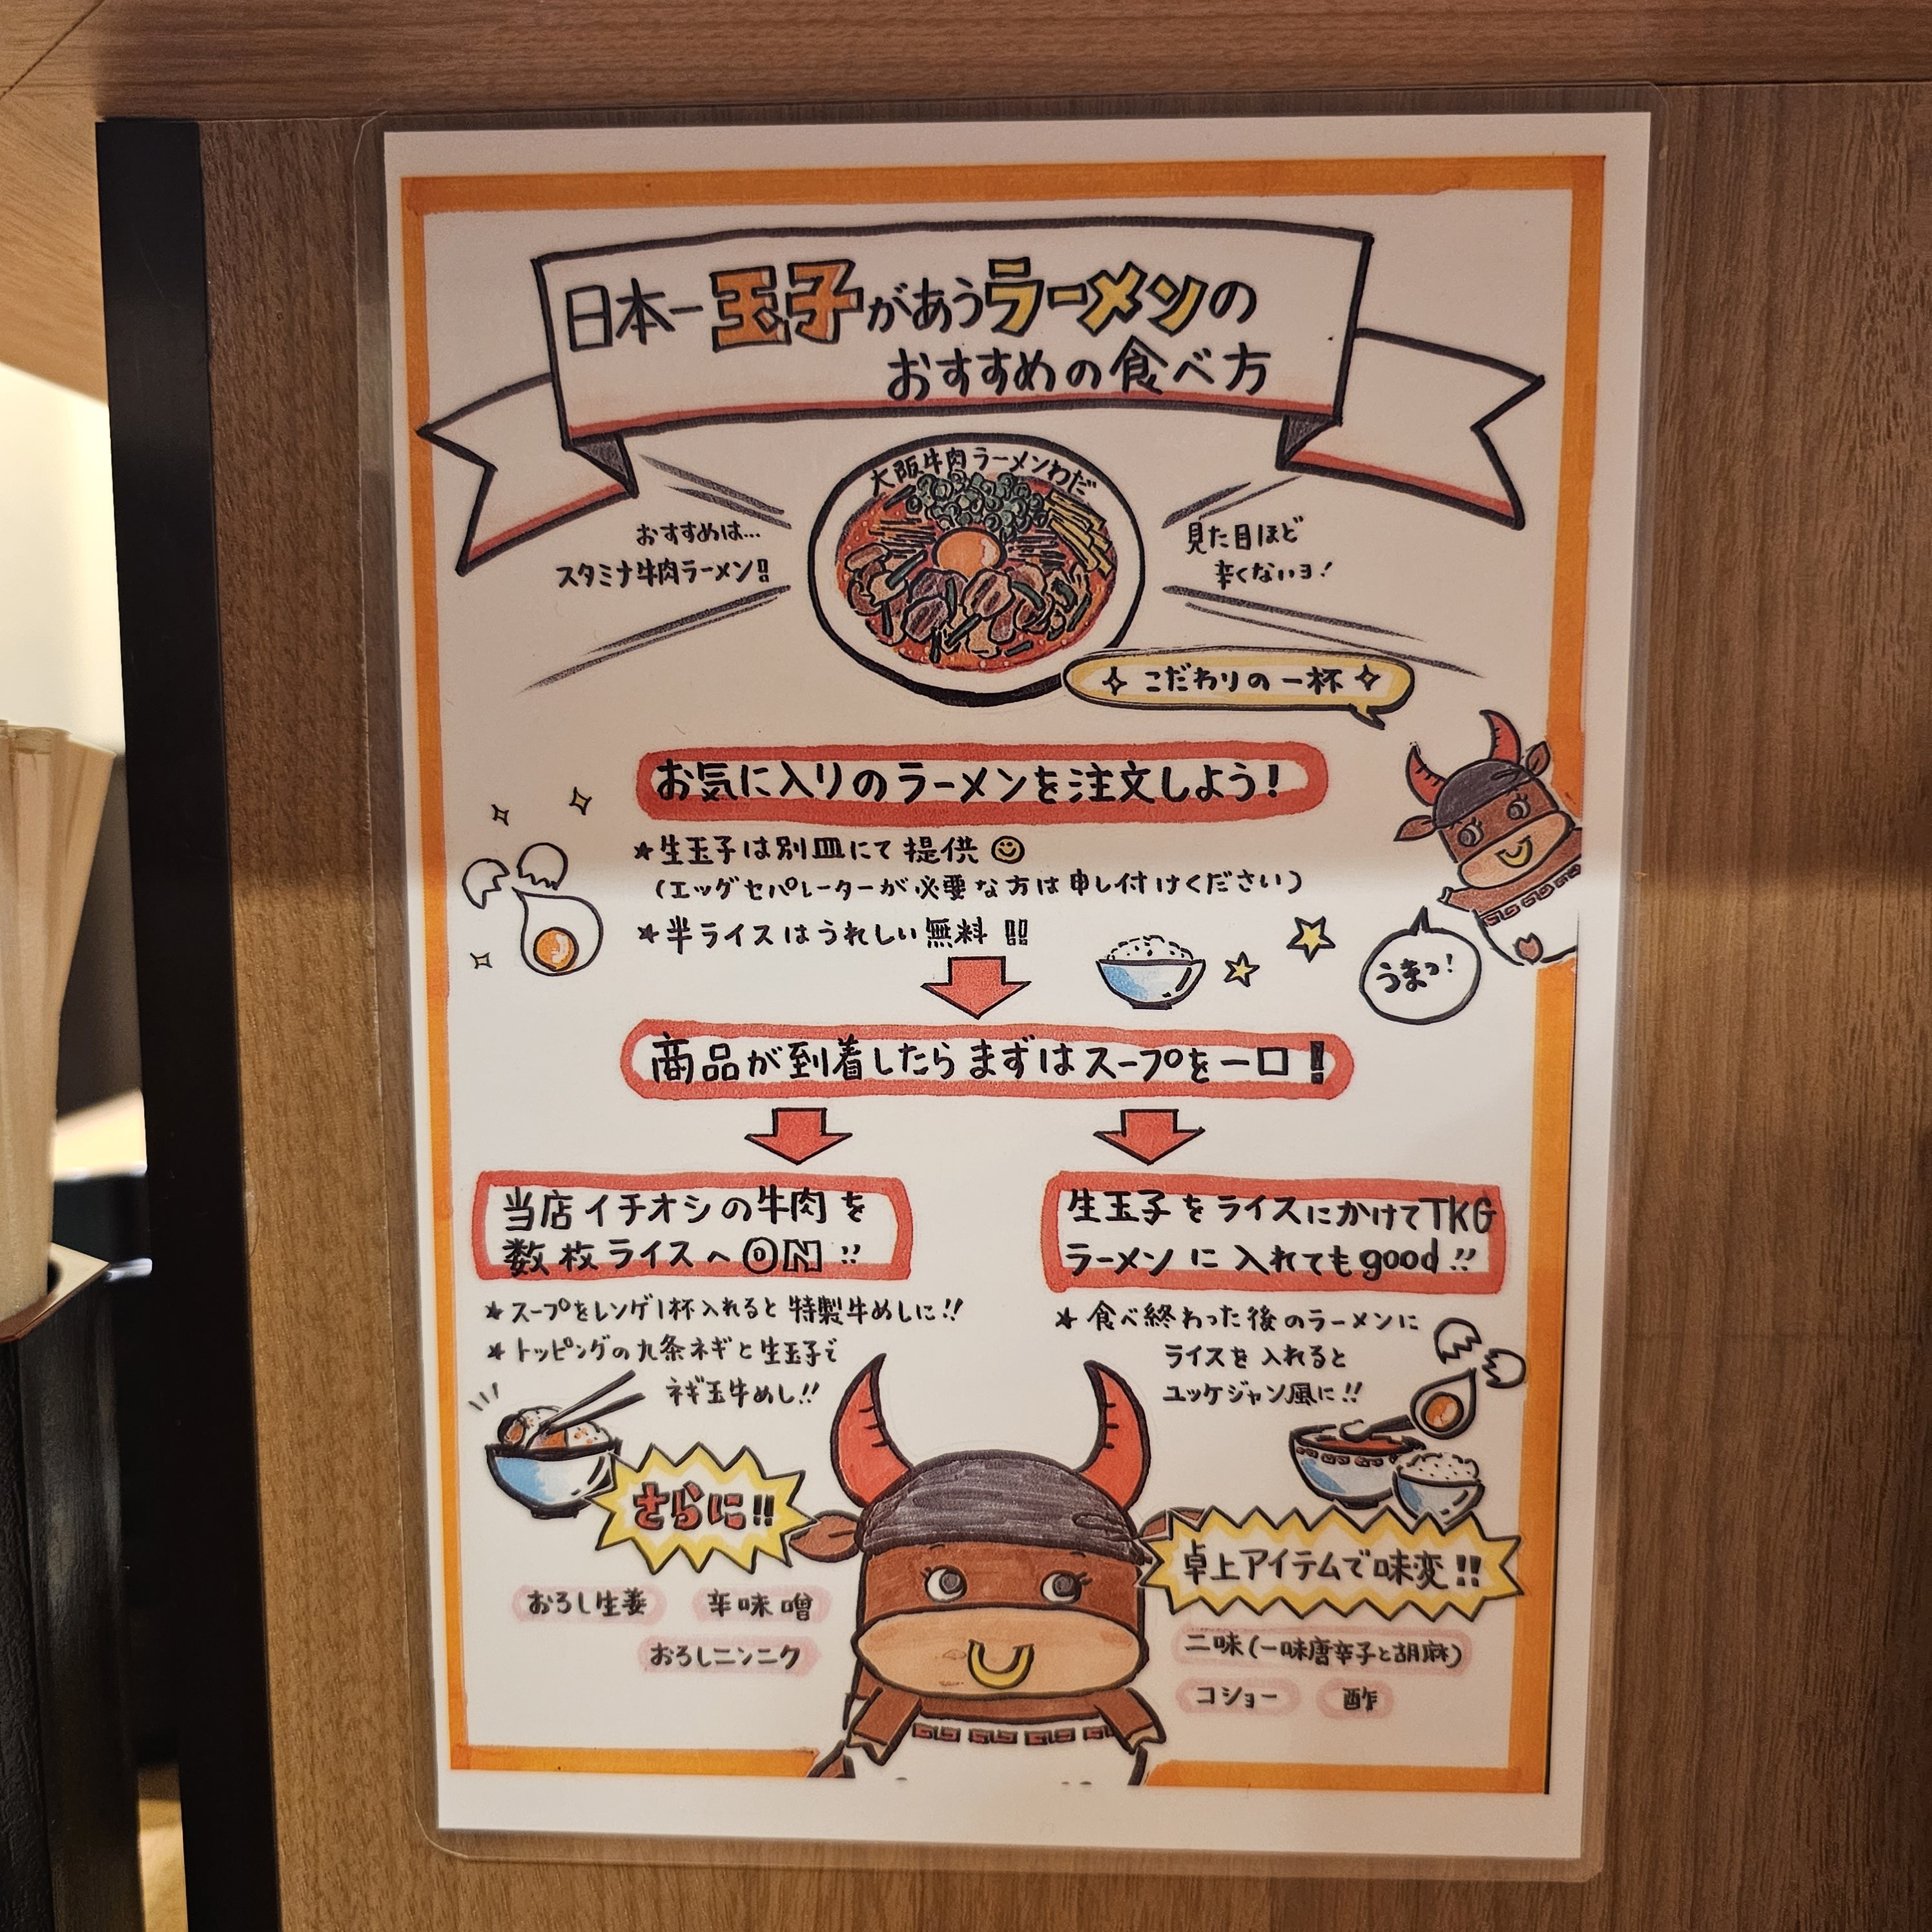 日本一玉子があうラーメンの
おすすめの食べ方
大阪牛肉ラーメンわだ
おすすめは…
スタミナ牛肉ラーメン!!
見た目ほど
辛くないヨ!
こだわりの一杯
お気に入りのラーメンを注文しよう!
★生玉子は別皿にて提供
(エッグセパレーターが必要な方は申し付けください)
★半ライスはうれしい無料!!
うまっ!
商品が到着したらまずはスープを一口!
当店イチオシの牛肉を
数枚ライスへON!!
★スープをレンゲ1杯入れると特製牛めしに!!
★トッピングの九条ネギと生玉子で
ネギ玉牛めし!!
生玉子をライスにかけてTKG
ラーメンに入れてもgood!!
★食べ終わった後のラーメンに
ライスを入れると
ユッケジャン風に!!
さらに!!
卓上アイテムで味変!!
おろし生姜 辛味噌
おろしニンニク
二味(一味唐辛子と胡麻)
コショー 酢